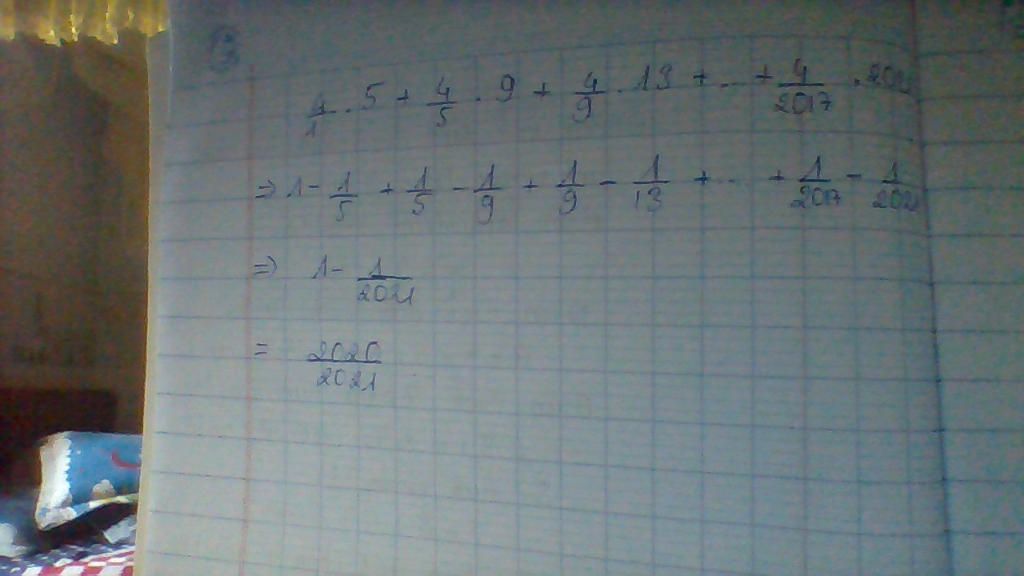 4/1 . 5 + 4/5 . 9 + 4/9 . 13 + ... + 4/2017 . 2021
⇒ 1 - 1/5 + 1/5 - 1/9 + 1/9 - 1/13 + ... + 1/2017 - 1/2021
⇒ 1 - 1/2021
= 2020/2021